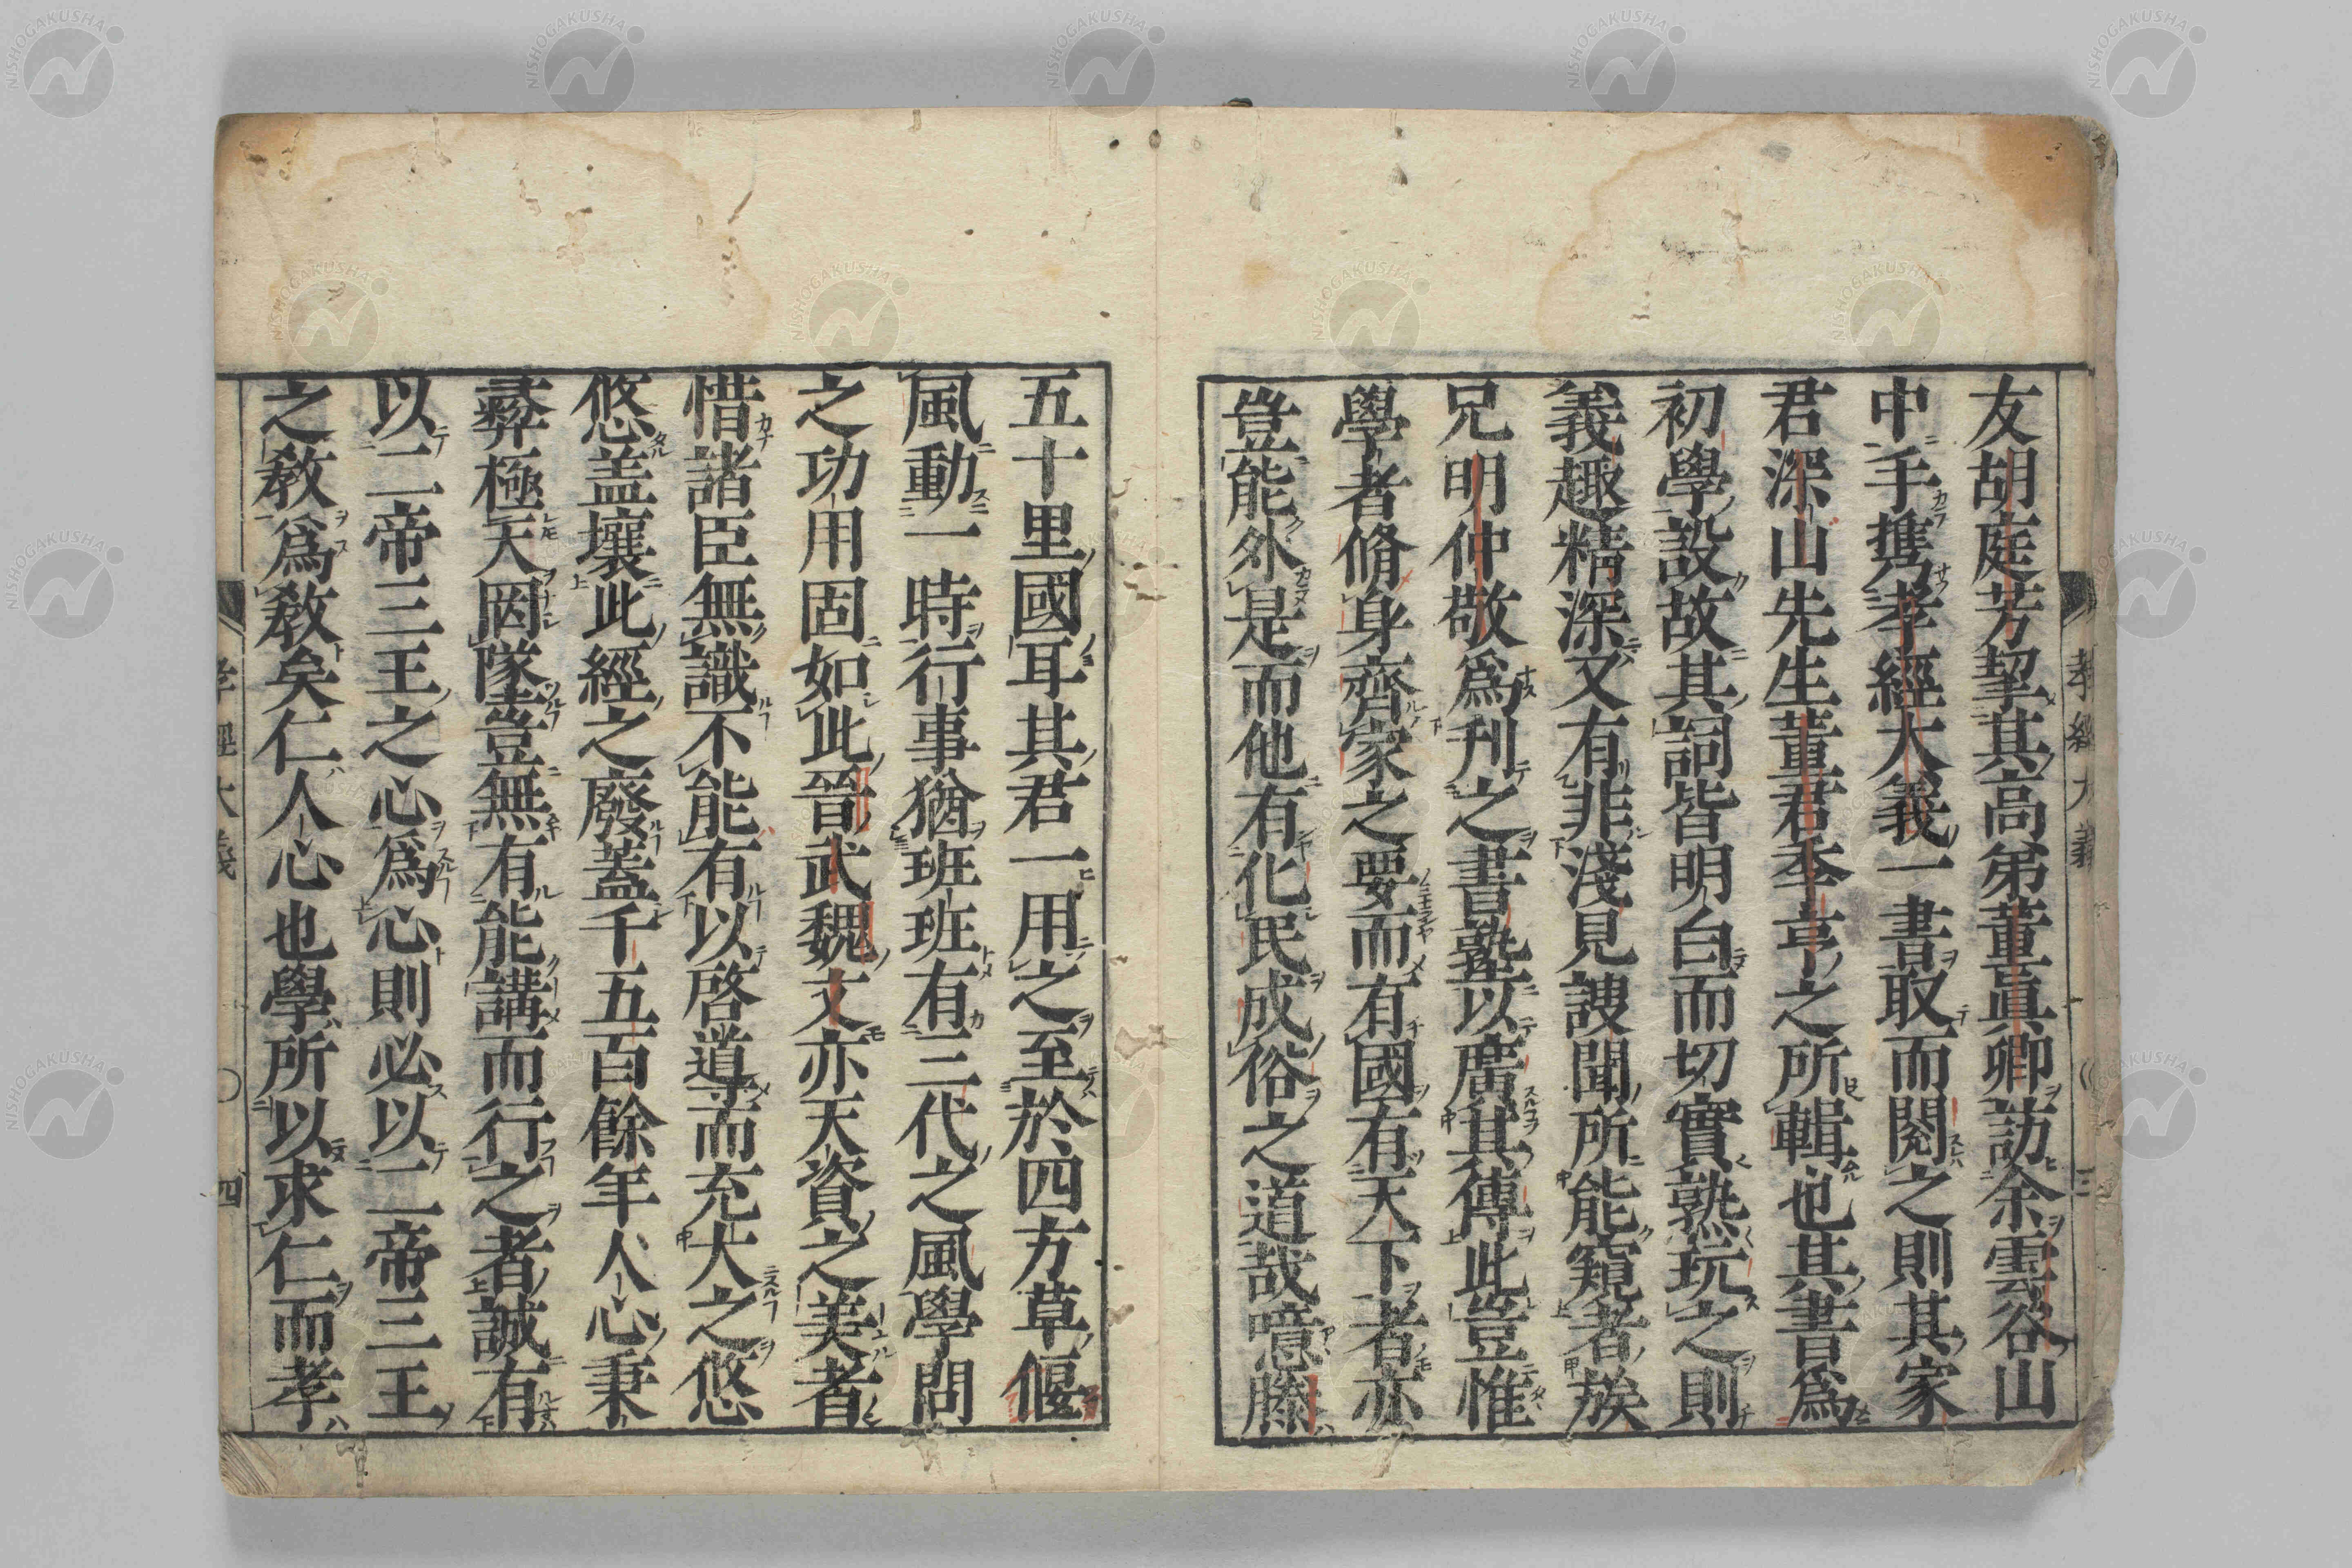 友胡庭芳挈其高弟董眞卿訪余雲谷山
中手攜孝經大義一書取而閱之則其家
君深山先生董君季亨之所輯也其書爲
初學設故其詞皆明白而切實熟玩之則
義趣精深又有非淺見謏聞所能窺者族
兄明仲敬爲刋之書塾以廣其傳此豈惟
學者脩身齊家之要而有國有天下者亦
豈能外是而他有化民成俗之道哉噫滕
五十里國耳其君一用之至於四方草偃
風動一時行事猶班班有三代之風學問
之功用固如此晉武魏文亦天資之美者
惜諸臣無識不能有以啓導而充大之悠
悠盖壤此經之廢蓋千五百餘年人心秉
彝極天罔墜豈無有能講而行之者誠有
以二帝三王之心爲心則必以二帝三王
之敎爲敎矣仁人心也學所以求仁而孝
孝經大義 三
孝經大義 四
NISHOGAKUSHA